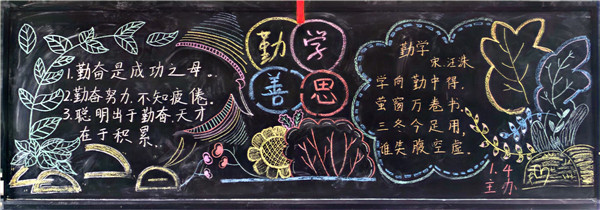 1.勤奋是成功之母。
2.勤奋努力,不知疲倦。
3.聪明出于勤奋,天才
在于积累。
勤学
善思
勤学
宋 汪洙
学向勤中得,
萤窗万卷书。
三冬今足用,
谁笑腹空虚。
1.4
主办